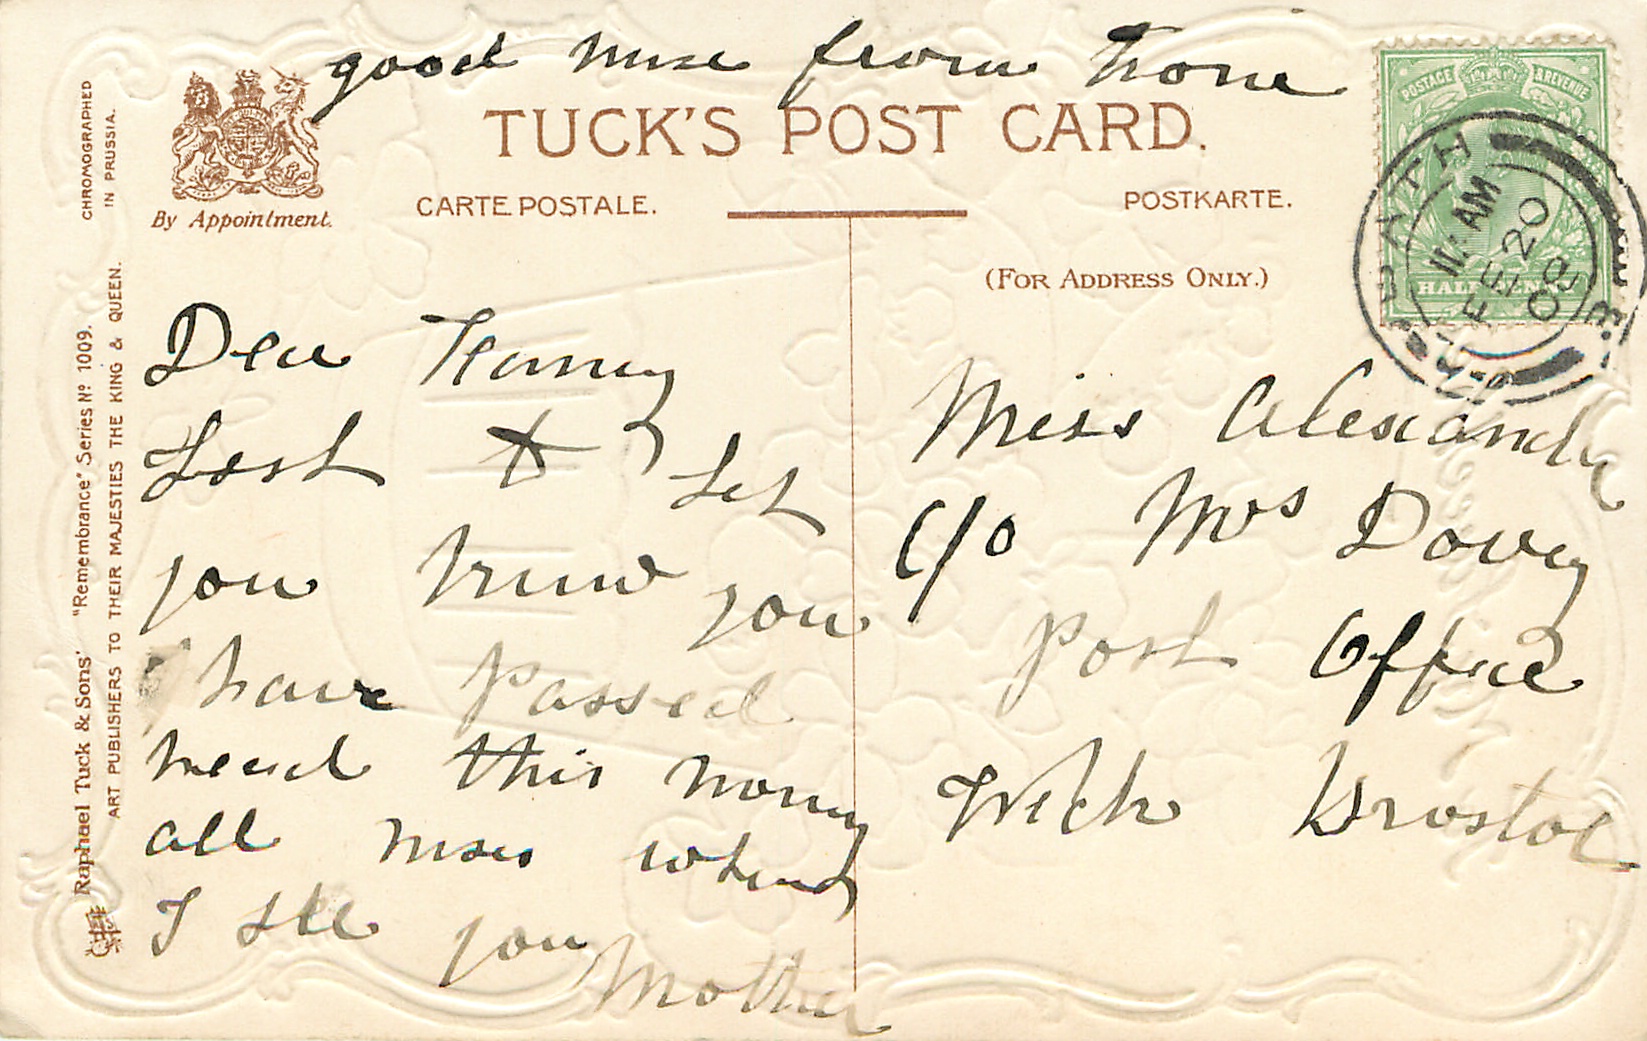 good nuse from
TUCK'S POST CARD.
CARTE POSTALE.
POSTKARTE.
By Appointment.
(FOR ADDRESS ONLY.)
CHROMOGRAPHED
IN PRUSSIA.
Raphael Tuck & Sons' "Remembrance" Series Nº 1009.
ART PUBLISHERS TO THEIR MAJESTIES THE KING & QUEEN.
POSTAGE & REVENUE
HALFPENNY
11. AM
FE 20
Dear
Let
you you
have passed
this
all when
I see you
Mother
Miss Alexander
C/o Mrs Dovey
Post Office
Wick Bristol